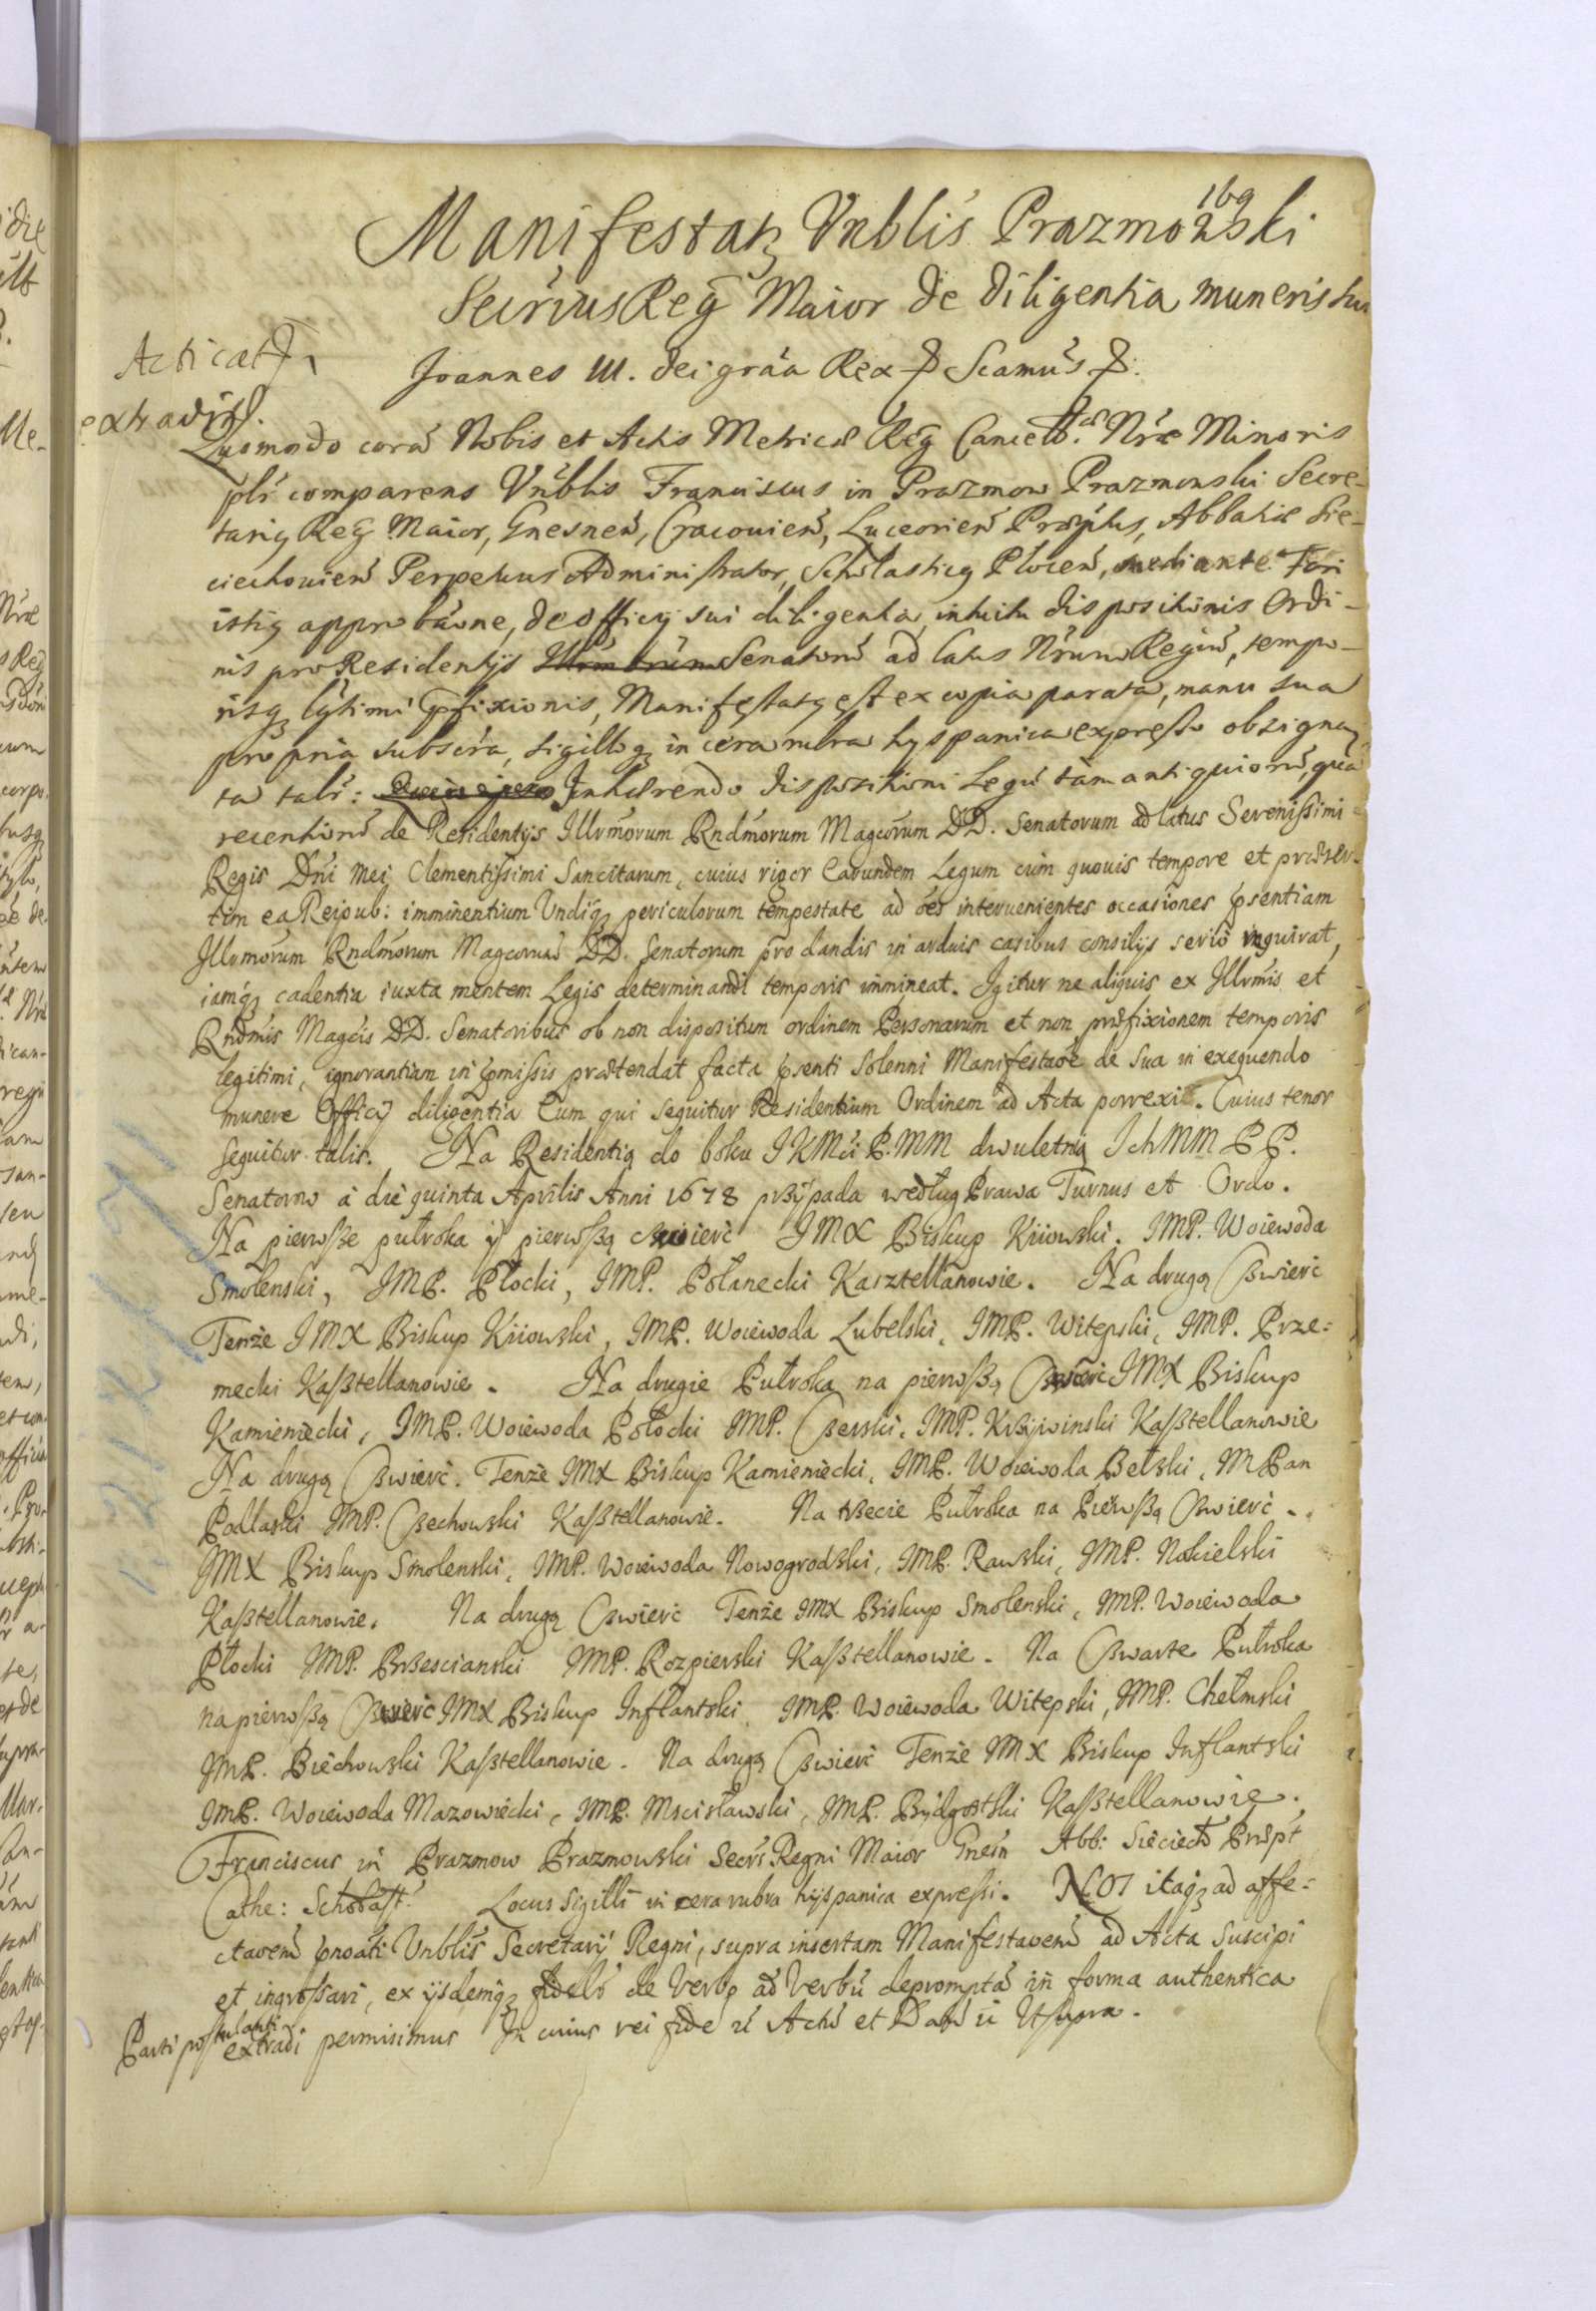 169
Manifestatꝫ Vnblis Prazmowski
Secrius Reg Maior de diligentia muneris sui
Acticat
extradit.
Joannes III. Dei gráa Rex Scamus
Quomodo corá Nobis et Actis Metricæ Reg Cancell. Nræ Minoris
plr comparens Vnblis Franciscus in Prazmow Prazmowski Secre-
tariꝯ Reg Maior, Gnesneń, Cracouień, Luceorień Præptus, Abbatiæ Sie-
ciechouień Perpetuus Administrator, Scholasticꝯ Ploceń, mediante
istiꝯ approbaone, de officij sui diligentia, intuitu dispositionis Ordi-
nis pro Residentijs Senatorú ad latus Nrum Regiú, tempo-
risqꝫ lgtimi pfixionis, Manifestatꝯ est ex copia parata, manu sua
propria subscra, sigilloqꝫ in cera rubra hyspanica expresso obsigna-
ta talr: Inhærendo dispositioni Legú tam antiquiorú, quá
recentiorú de Residentijs Illrmorum Rndmorum Magcorum DD. Senatorum ad latus Serenissimi
Regis Dni Mei Clementissimi Sancitarum, cuius rigor Earundem Legum cum quouis tempore et præser-
tim ea Reipub: imminentium Vndiqꝫ periculorum tempestate ad oes interuenientes occasiones psentiam
Illrmorum Rndmorum Magcorum DD. Senatorum pro dandis in arduis casibus consilijs serio requirat,
iamqꝫ cadentia iuxta mentem Legis determinandi temporis immineat. Igitur ne aliquis ex Illrmis et
Rndmis Magcis DD. Senatoribus ob non dispositum ordinem Personarum et non præfixionem temporis
legitimi, ignorantiam in pmissis prætendat facta psenti Solenni Manifestaoe de Sua in exequendo
munere Officij diligentia Eum qui sequitur Residentium Ordinem ad Acta porrexit. Cuius tenor
sequitur talis. Na Residentią do boku JKMci P. MM dwuletnią JchMM PP.
Senatorow á die quinta Aprilis Anni 1678 przypada według Prawa Turnus et Ordo.
Na pierwsze pułroka y pierwszą czwierć JMX Biskup Kiiowski. JMP. Woiewoda
Smolenski, JMP. Płocki, JMP. Połanecki Kasztellanowie. Na drugą Czwierć
Tenże JMX Biskup Kiiowski, JMP. Woiewoda Lubelski, JMP. Witepski, JMP. Prze=
mecki Kasztellanowie. Na drugie Pułroka na pierwszą Czwierć JMX Biskup
Kamieniecki, JMP. Woiewoda Połocki JMP. Czerski, JMP. Krzywinski Kasztellanowie
Na drugą Czwierć. Tenże JMX Biskup Kamieniecki, JMP. Woiewoda Bełzki, JMPan
Podlaski JMP. Czechowski Kasztellanowie. Na trzecie Pułroka na Pierwszą Czwierć.
JMX Biskup Smolenski, JMP. Woiewoda Nowogrodzki, JMP. Rawski, JMP. Nakielski
Kasztellanowie. Na drugą Czwierć Tenże JMX Biskup Smolenski, JMP. Woiewoda
Płocki JMP. Brzescianski JMP. Rozpierski Kasztellanowie. Na Czwarte Pułroka
na pierwszą Czwierć JMX Biskup Inflantski, JMP. Woiewoda Witepski, JMP. Chełmski
JMP. Biechowski Kasztellanowie. Na drugą Czwierć Tenże JMX Biskup Inflantski
JMP. Woiewoda Mazowiecki, JMP. Mscisławski, JMP. Bydgostski Kasztellanowie.
Franciscus in Prazmow Prazmowski Secrs Regni Maior Gnesn Abb: Sieciech Præpt
Cathe: Scholast. Locus Sigilli in cera rubra hyspanica expressi. NOS itaqꝫ ad affe=
ctaoem pnoati Vnblis Secretarij Regni, supra insertam Manifestaoem ad Acta Suscipi
et ingrossari, ex ijsdemqꝫ fidelr de Verbo ad Verbú depromptá in forma authentica
Parti postulanti extradi permisimus In cuius rei fidé Actú et Datú ut supra.